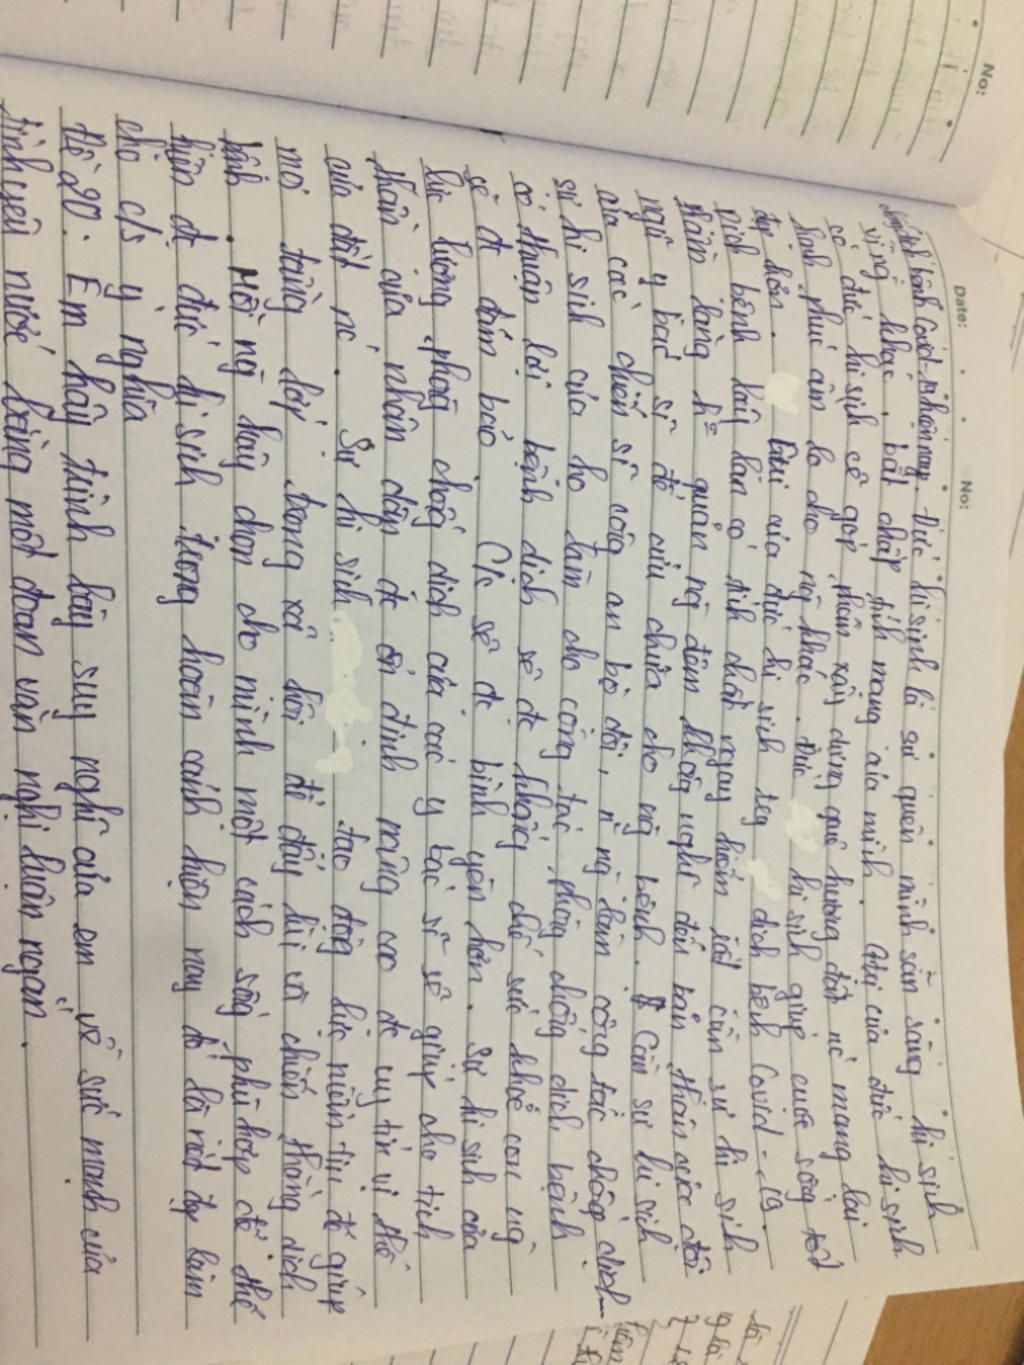 No:
Date:
No:
dịch bệnh Covid-19 hiện nay. Đức hi sinh là sự quên mình sẵn sàng hi sinh
vì ng khác, bất chấp tính mạng của mình. Giá trị của đức hi sinh
có đức hi sinh sẽ góp phần xây dựng quê hương đất nc mang lại
hạnh phúc ấm no cho ng khác. Đức hi sinh giúp cuộc sống tốt
đẹp hơn. của đức hi sinh dịch bệnh Covid-19.
Dịch bệnh lây lan có tính chất nguy hiểm rất cần sự hi sinh
thầm lặng ko quản ngày đêm không nghĩ đến bản thân của đội
ngũ y bác sĩ để cứu chữa cho ng bệnh. Cần sự hi sinh
của các chiến sĩ công an bộ đội, ng làm công tác chống dịch
sự hi sinh của họ làm cho công tác phòng chống dịch bệnh
có thuận lợi bệnh dịch sẽ đc khống chế sức khoẻ con ng
sẽ đc đảm bảo. C/s sẽ đc bình yên hơn. Sự hi sinh của
lực lượng phòng chống dịch của các y bác sĩ sẽ giúp cho tinh
thần của nhân dân đc ổn định nâng cao đc uy tín vị thế
của đất nc. Sự hi sinh tạo động lực niềm tin để giúp
mọi tầng lớp trong xã hội để đẩy lùi và chiến thắng dịch
bệnh. Mỗi ng hãy chọn cho mình một cách sống phù hợp để thể
hiện đc đức hi sinh trong hoàn cảnh hiện nay đó là rất đẹp làm
cho c/s ý nghĩa
Đề 20: Em hãy trình bày suy nghĩ của em về sức mạnh của
tình yêu nước bằng một đoạn văn nghị luận ngắn.